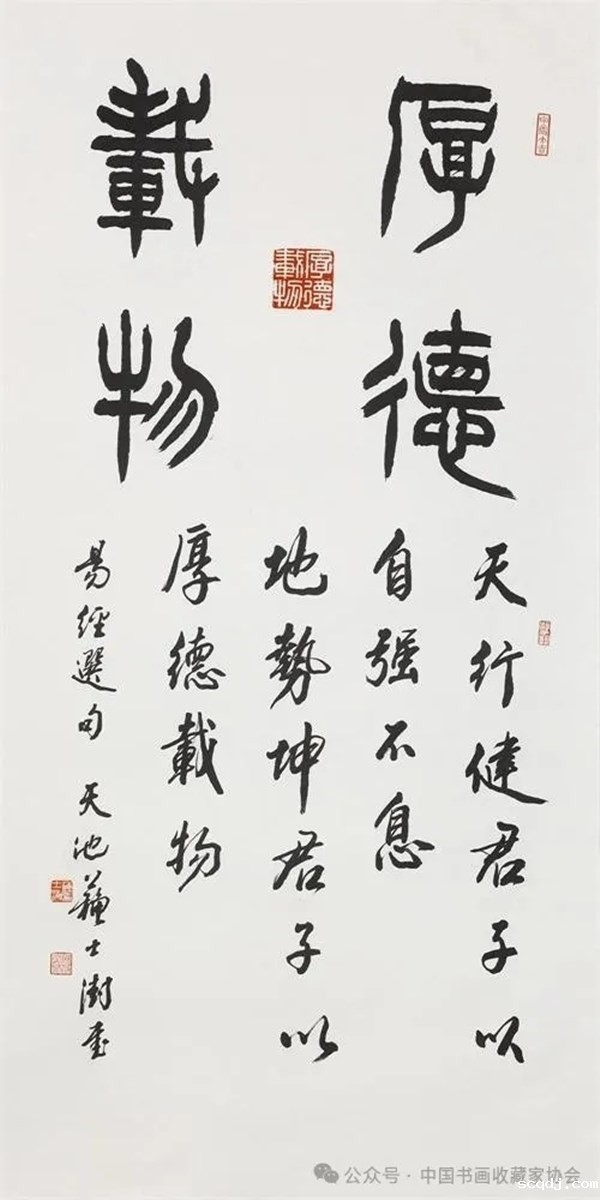 厚德
載物
厚德載物
天行健君子以
自强不息
地勢坤君子以
厚德載物
易經選句 天池蘇士澍書
公众号·中国书画收藏家协会
scqdj.com